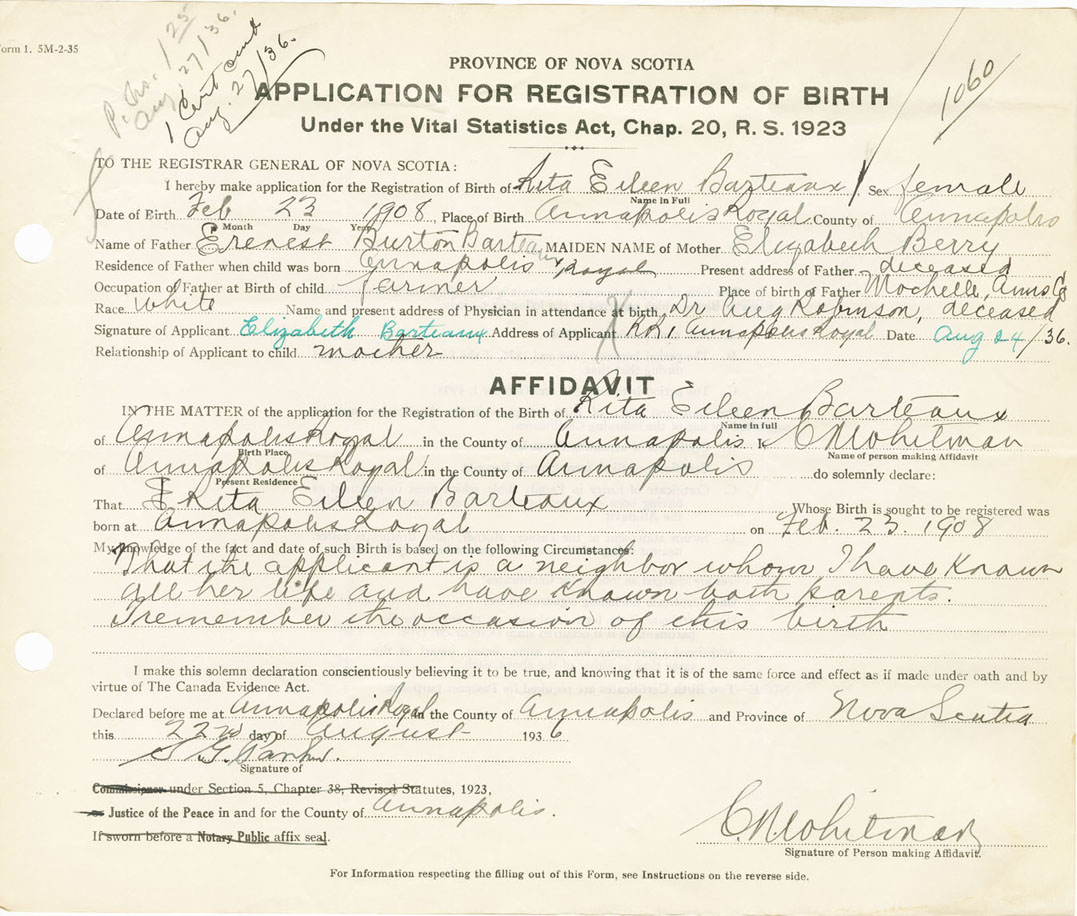 Form 1. 5M-2-35
P. Chs. 1 25
Aug. 27/36.
1 Cert
Aug. 27/36.
1060
PROVINCE OF NOVA SCOTIA
APPLICATION FOR REGISTRATION OF BIRTH
Under the Vital Statistics Act, Chap. 20, R. S. 1923
TO THE REGISTRAR GENERAL OF NOVA SCOTIA:
I hereby make application for the Registration of Birth of Rita Eileen Barteaux Sex female
Name in Full
Date of Birth Feb 23 1908 Place of Birth Annapolis Royal County of Annapolis
Month Day Year
Name of Father Erenest Burton Barteaux MAIDEN NAME of Mother Elizabeth Berry
Residence of Father when child was born Annapolis Royal Present address of Father deceased
Occupation of Father at Birth of child farmer Place of birth of Father Mochelle, Anns Co
Race white Name and present address of Physician in attendance at birth Dr Aug Robinson, deceased
Signature of Applicant Elizabeth Barteaux Address of Applicant RR1 Annapolis Royal Date Aug 24/36.
Relationship of Applicant to child mother
AFFIDAVIT
IN THE MATTER of the application for the Registration of the Birth of Rita Eileen Barteaux
Name in full
of Annapolis Royal in the County of Annapolis C Whitman
Birth Place Name of person making Affidavit
of Annapolis Royal in the County of Annapolis do solemnly declare:
Present Residence
That Rita Eileen Barteaux Whose Birth is sought to be registered was
born at Annapolis Royal on Feb. 23. 1908
My knowledge of the fact and date of such Birth is based on the following Circumstances:
That the applicant is a neighbor whom I have known
all her life and have known both parents.
I remember the occasion of this birth
I make this solemn declaration conscientiously believing it to be true, and knowing that it is of the same force and effect as if made under oath and by
virtue of The Canada Evidence Act.
Declared before me at Annapolis Royal in the County of Annapolis and Province of Nova Scotia
this 22nd day of August 1936
Signature of
Commissioner under Section 5, Chapter 38, Revised Statutes, 1923,
or Justice of the Peace in and for the County of Annapolis.
If sworn before a Notary Public affix seal.
C Whitman
Signature of Person making Affidavit.
For Information respecting the filling out of this Form, see Instructions on the reverse side.